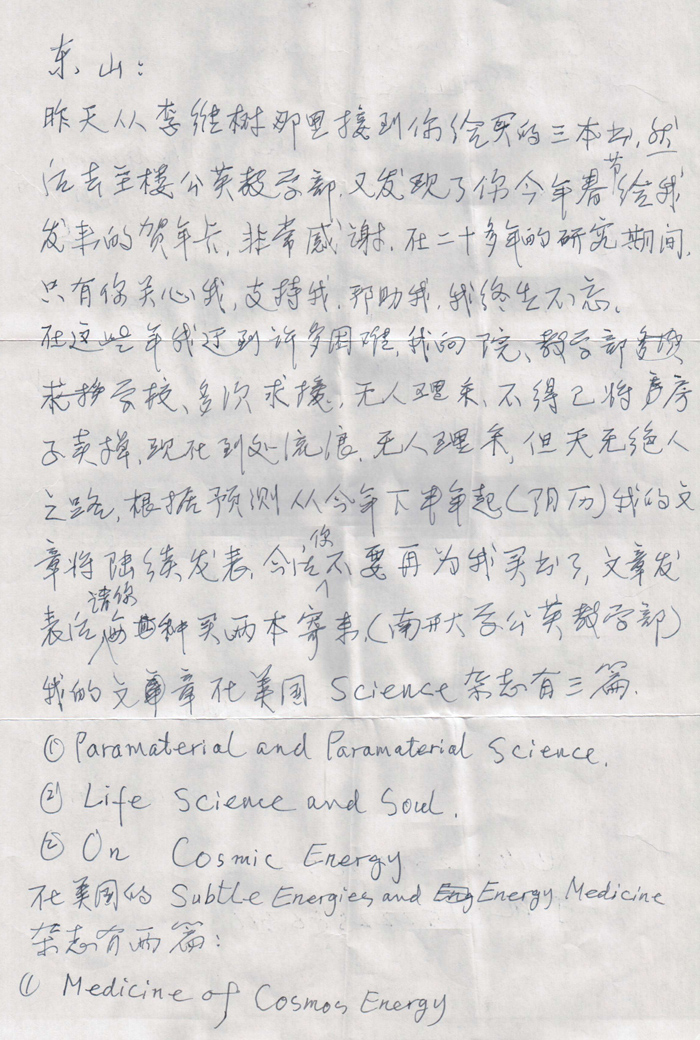 东山:
昨天从李维树那里接到你给买的三本书,然
后去主楼公英教学部,又发现了你今年春节给我
发来的贺年卡,非常感谢.在二十多年的研究期间,
只有你关心我,支持我,帮助我,我终生不忘。
在这些年我迂到许多困难,我向院、教学部
学校、多次求援,无人理采,不得已将房
子卖掉,现在到处流浪,无人理采,但天无绝人
之路,根据预测从今年下半年起(阴历)我的文
章将陆续发表,今后你不要再为我买书了,文章发
表后请你每种买两本寄来,(南开大学公英教学部)
我的文章在美国 Science 杂志有三篇.
① Paramaterial and Paramaterial Science.
② Life Science and Soul.
② On Cosmic Energy
在美国的 Subtle Energies and Energy Medicine
杂志有两篇:
① Medicine of Cosmos Energy